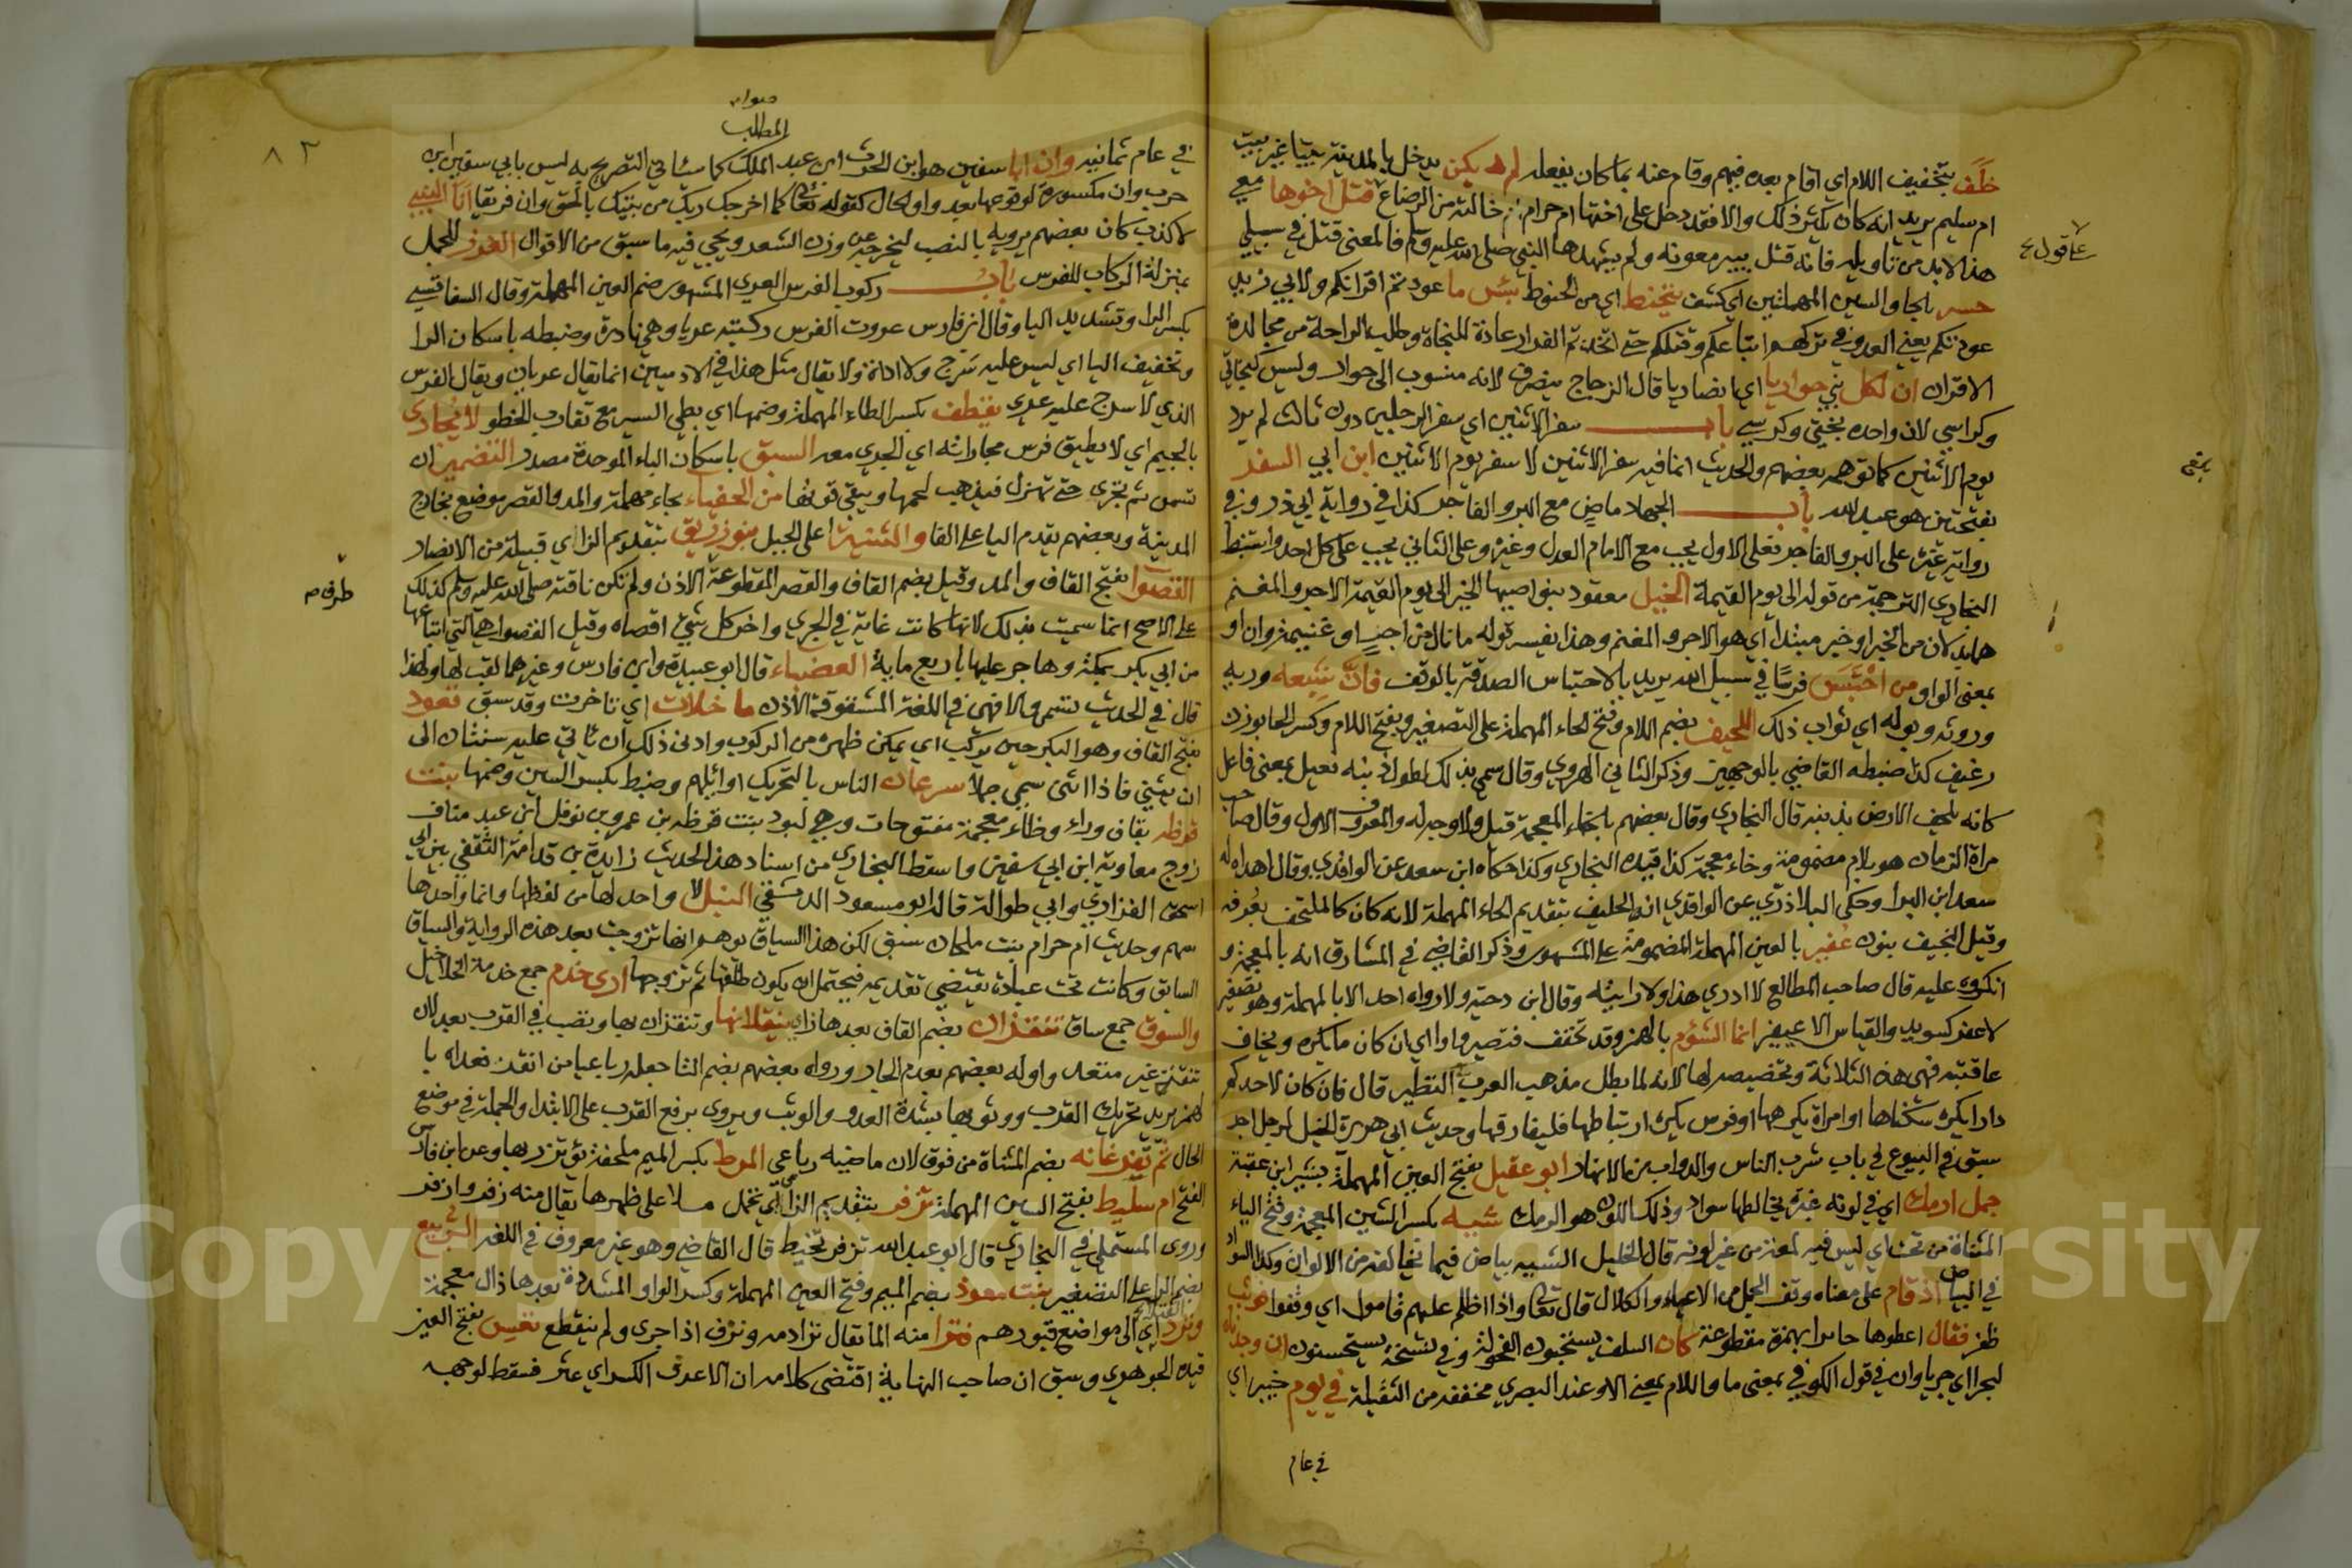 خلَف بتخفيف اللام اي اقام بعده فيهم وقام عنه بما كان يفعله لم يكن يدخل بالمدينة بيتا غير بيت
ام سليم يريد انه كان يكثر ذلك والا فقد دخل على اختها ام حرام خالته من الرضاع قتل اخوها معي
هذا لا بد من تاويله فانه قتل ببير معونة ولم يشهدها النبي صلى الله عليه وسلم فالمعنى قتل في سبيلي
حسر بالحا والسين المهملتين اي كشف يتحنط اي من الحنوط بئس ما عودتم اقرانكم ولابي زيد
عودتكم يعني العدو في تركهم اتباعكم وقتلكم حتى اتخذتم الفرار عادة للنجاة وطلب الراحة من مجالدة
الاقران ان لكل نبي حواريا اي انصاريا قال الزجاج ينصرف لانه منسوب الى حوار وليس كبخاتي
وكراسي لان واحده بختي وكرسي باب سفر الاثنين اي سفر الرجلين دون ثالث لم يرد
يوم الاثنين كما توهمه بعضهم والحديث انما فيه سفر الاثنين لا سفر يوم الاثنين ابن ابي السفر
بفتحتين هو عبد الله باب الجهاد ماض مع البر والفاجر كذا في رواية ابي ذر وفي
رواية غيره على البر والفاجر فعلى الاول يجب مع الامام العدل وغيره وعلى الثاني يجب على كل احد واستنبط
البخاري الترجمة من قوله الى يوم القيمة الخيل معقود بنواصيها الخير الى يوم القيمة الاجر والمغنم
هما بدلان من الخير او خبر مبتدا اي هو الاجر والمغنم وهذا يفسر قوله ما نال من اجر او غنيمة وان او
بمعنى الواو من احتبس فرسا في سبيل الله يريد بالاحتباس الصدقة بالوقف فان شبعه وريه
وروثه وبوله اي ثواب ذلك اللحيف بضم اللام وفتح الحاء المهملة على التصغير وبفتح اللام وكسر الحا بوزن
رغيف كذا ضبطه القاضي بالوجهين وذكر الثاني الهروي وقال سمي بذلك لطول ذنبه فعيل بمعنى فاعل
كانه يلحف الارض بذنبه قال البخاري وقال بعضهم بالخاء المعجمة قيل ولا وجه له والمعروف الاول وقال صاحب
مراة الزمان هو بلام مضمومة وخاء معجمة كذا قيده البخاري وكذا حكاه ابن سعد عن الواقدي وقال اهداه له
سعد ابن البرا وحكى البلاذري عن الواقدي انه الحليف بتقديم الحاء المهملة لانه كان كالملتحف بعرفه
وقيل النحيف بنون عُفير بالعين المهملة المضمومة على المشهور وذكر القاضي في المشارق انه بالمعجمة و
انكروه عليه قال صاحب المطالع لا ادري هذا ولا رايته وقال ابن دحية ولا رواه احد الا بالمهملة وهو تصغير
لاعفر كسويد والقياس الاعيفر انما الشؤم بالهمز وقد تخفف فتصير واوا اي ان كان ما يكره ويخاف
عاقبته فهي هذه الثلاثة وتخصيصه لها لانه لما بطل مذهب العرب في التطير قال فان كان لاحدكم
دار يكره سكناها او امراة يكرهها او فرس يكره ارتباطها فليفارقها وحديث ابي هريرة الخيل لرجل اجر
سبق في البيوع في باب شرب الناس والدواب من الانهار ابو عقيل بفتح العين المهملة بشير ابن عقبة
جمل ارمك اي في لونه غبرة يخالطها سواد وذلك اللون هو الرمك شيه بكسر الشين المعجمة وفتح الياء
المثناة من تحت اي ليس فيه لمعة من غير لونه قال الخليل الشيه بياض فيما يخالفه من الالوان وكذا السواد
في البياض اذ قام على معناه وقف الجمل من الاعياء والكلال قال تعالى واذا اظلم عليهم قاموا اي وقفوا
ظفر فقال اعطوها جابرا بهمزة مقطوعة كان السلف يستحبون الفحولة وفي نسخة يستحسنون ان وجدناه
لبحرا اي جريا وان في قول الكوفي بمعنى ما واللام بمعنى الا وعند البصري مخففة من الثقيلة في يوم خيبر اي
في عام
على قول ع
٨٣
صوابه
المطلب
في عام ثمانيه وان ابا سفين هو ابن الحرث ابن عبد الملك كما سياتي التصريح به ليس بابي سفين ابن
حرب وان مكسورة لوقوعها بعد واو الحال كقوله تعالى كما اخرجك ربك من بيتك بالحق وان فريقا انا النبي
لا كذب كان بعضهم يرويه بالنصب ليخرجه عن وزن الشعر ويجي فيه ما سبق من الاقوال الغرز للجمل
بمنزلة الركاب للفرس باب ركوب الفرس العري المشهور ضم العين المهملة وقال السفاقسي
بكسر الرا وتشديد اليا وقال ابن فارس عروت الفرس ركبته عريا وهي نادرة وضبطه باسكان الرا
وتخفيف اليا اي ليس عليه سرج ولا اداة ولا يقال مثل هذا في الادميين انما يقال عريان ويقال الفرس
الذي لا سرج عليه عرى يقطف بكسر الطاء المهملة وضمها اي بطي السير مع تقارب الخطو لا يُجارى
بالجيم اي لا يطيق فرس مجاراته اي الجري معه السبق باسكان الباء الموحدة مصدر التضمير ان
تسمن ثم تجري حتى تهزل فيذهب لحمها ويبقى قوتها من الحفياء بحاء مهملة والمد والقصر موضع بخارج
المدينة وبعضهم يقدم اليا على الفا والثنية اعلى الجبل بنو زريق بتقديم الزاي قبيلة من الانصار
القصوا بفتح القاف والمد وقيل بضم القاف والقصر المقطوعة الاذن ولم تكن ناقته صلى الله عليه وسلم كذلك
على الاصح انما سميت بذلك لانها كانت غاية في الجري واخر كل شيء اقصاه وقيل القصوا هي التي ابتاعها
من ابي بكر بمكة وهاجر عليها باربع ماية العضباء قال ابو عبيدة وابن فارس وغيرهما لقب لها ولهذا
قال في الحديث تسمى والا فهي في اللغة المشقوقة الاذن ما خلات اي تاخرت وقد سبق قعود
بفتح القاف وهو البكر حين يركب اي يمكن ظهره من الركوب وادنى ذلك ان ياتي عليه سنتان الى
ان يثني فاذا اثنى سمي جملا سرعان الناس بالتحريك اوائلهم وضبط بكسر السين وضمها بنت
قرظه بقاف وراء وظاء معجمة مفتوحات وهي لبود بنت قرظه بن عمرو بن نوفل ابن عبد مناف
زوج معاوية ابن ابي سفين واسقط البخاري من اسناد هذا الحديث زايدة بن قدامة الثقفي بين ابي
اسحق الفزاري وابي طوالة قاله ابو مسعود الدمشقي النبل لا واحد لها من لفظها وانما واحدها
سهم وحديث ام حرام بنت ملحان سبق لكن هذا السياق يوهم انها تزوجت بعد هذه الرواية والسياق
السابق وكانت تحت عبادة يقتضي تقديمه فيحتمل ان يكون طلقها ثم تزوجها ارى خدم جمع خدمة الخلاخيل
والسوق جمع ساق تنقزان بضم القاف بعدها زاي ينقلانها وتنقزان بها ونصب في القرب بعيد لان
تنقز غير متعد واوله بعضهم بعدم الجار ورواه بعضهم بضم التا جعله رباعيا من انقز فعداه با
لهمز يريد تحريك القرب ووثوبها بشدة العدو والوثب ويروى برفع القرب على الابتدا والجملة في موضع
الحال ثم تفرغانه بضم المثناة من فوق لان ماضيه رباعي المرط بكسر الميم ملحفة يؤتزر بها وعن ابن فارس
الفتح ام سليط بفتح السين المهملة تزفر بتقديم الزاي اي تحمل ملا على ظهرها يقال منه زفر وازفر
وروى المستملي في البخاري قال ابو عبد الله تزفر تخيط قال القاضي وهو غير معروف في اللغة الربيع
بضم الرا على التصغير بنت معوذ بضم الميم وفتح العين المهملة وكسر الواو المشددة بعدها ذال معجمة
ونرد القتلى اي الى مواضع قبورهم فنزا منه الما يقال نزا دمه ونزف اذا جرى ولم ينقطع تعس بفتح العين
قيده الجوهري وسبق ان صاحب النهاية اقتضى كلامه ان الاعرف الكسر اي عثر فسقط لوجهه
طرف م
Copyright © King Saud University